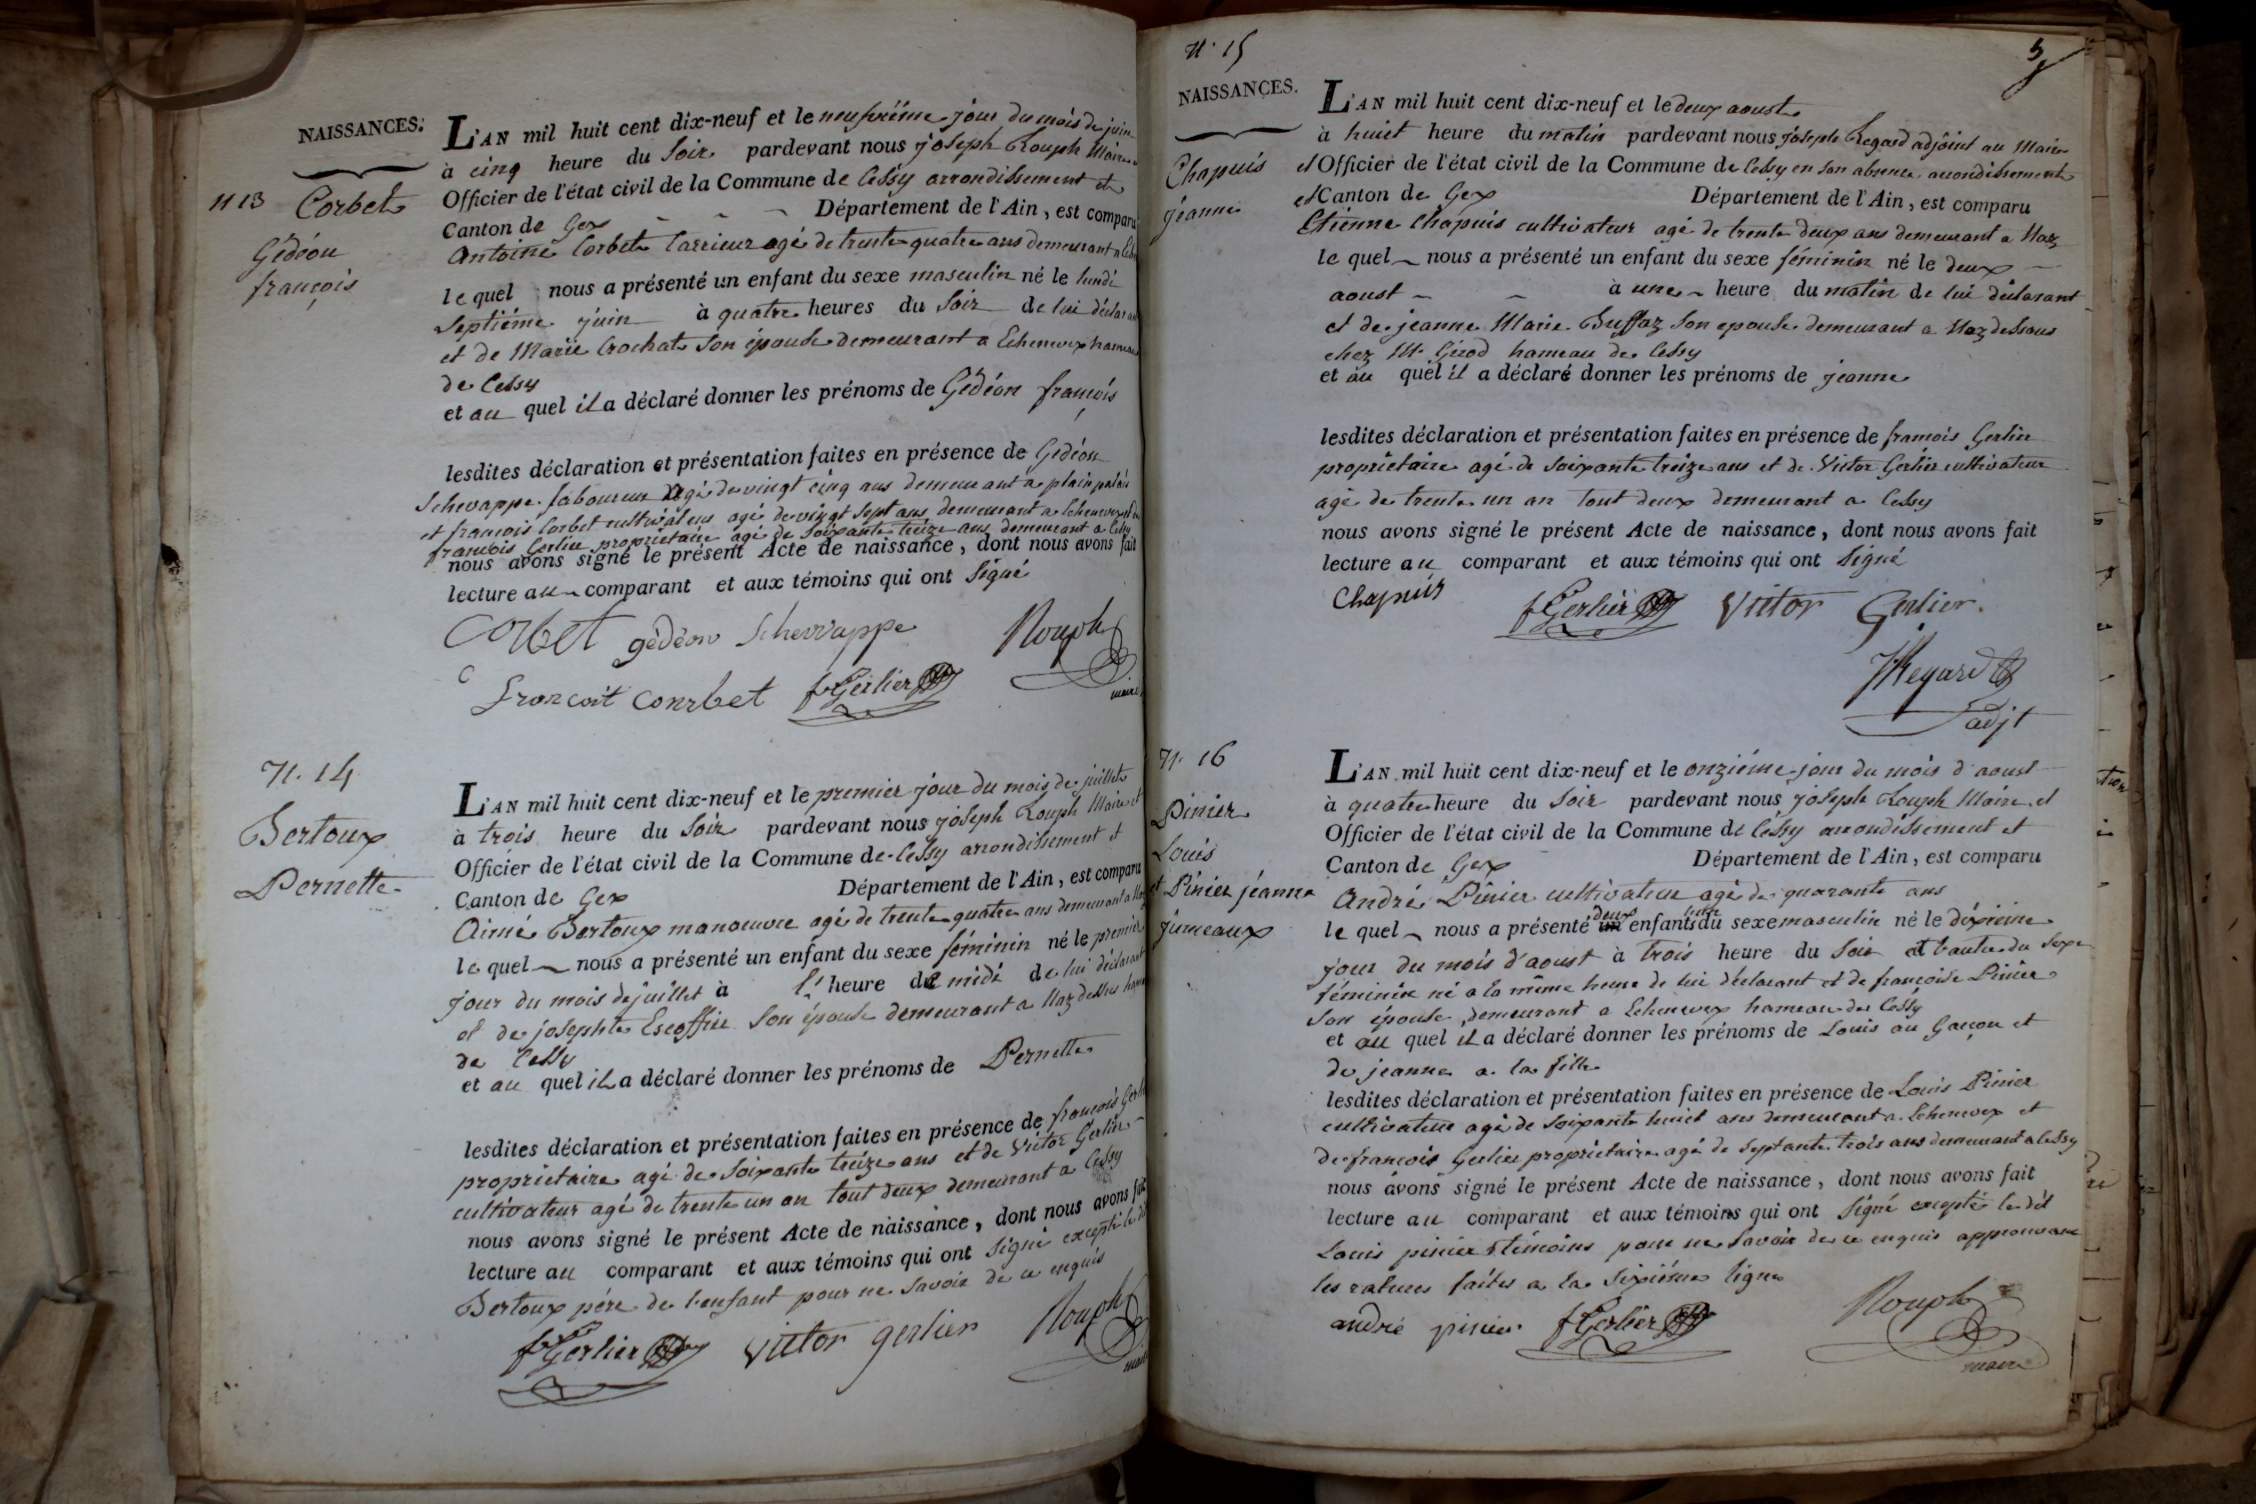 NAISSANCES.
N 13
Corbet
Gédéon
françois
L'AN mil huit cent dix-neuf et le neufviéme jour du mois de juin
à cinq heure du Soir pardevant nous joseph Rouph Maire
Officier de l'état civil de la Commune de Cessy arrondissement et
Canton de Gex Département de l'Ain, est comparu
Antoine Corbet Carrieur agé de trente quatre ans demeurant a
le quel nous a présenté un enfant du sexe masculin né le lundi
Septiéme juin à quatre heures du Soir de lui déclarant
et de Marie Crochat Son épouse demeurant a Echenevex hameau
de Cessy
et au quel il a déclaré donner les prénoms de Gédéon françois
lesdites déclaration et présentation faites en présence de Gédéon
Schevappe laboureur agé de vingt cinq ans demeurant a plain palais
et francois Corbet cultivateur agé de vingt Sept ans demeurant a Echenevex et de
francois Gerlier proprietaire agé de Soixante treize ans demeurant a Cessy
nous avons signé le présent Acte de naissance, dont nous avons fait
lecture au comparant et aux témoins qui ont Signé
Corbet gédéon Schevvappe Rouph
francoit Conrbet f Gerlier maire
N. 14
Bertoux
Pernette
L'AN mil huit cent dix-neuf et le premier jour du mois de juillet
à trois heure du Soir pardevant nous joseph Rouph Maire et
Officier de l'état civil de la Commune de Cessy arrondissement et
Canton de Gex Département de l'Ain, est comparu
Aimé Bertoux manoeuvre agé de trente quatre ans demeurant a
le quel nous a présenté un enfant du sexe féminin né le premier
jour du mois de juillet à l' heure de midi de lui déclarant
et de josephte Escoffier Son épouse demeurant a Naz dessus hameau
de Cessy
et au quel il a déclaré donner les prénoms de Pernette
lesdites déclaration et présentation faites en présence de francois Gerlier
proprietaire agé de Soixante treize ans et de Victor Gerlier
cultivateur agé de trente un an tout deux demeurant a Cessy
nous avons signé le présent Acte de naissance, dont nous avons fait
lecture au comparant et aux témoins qui ont Signé excepté le dit
Bertoux pére de l'enfant pour ne Savoir de ce enquis
f Gerlier Victor gerlier Rouph
maire
N. 15
5
NAISSANCES.
Chapuis
jeanne
L'AN mil huit cent dix-neuf et le deux aoust
à huict heure du matin pardevant nous joseph Regard adjoint au Maire
et Officier de l'état civil de la Commune de Cessy en son absence arrondissement
et Canton de Gex Département de l'Ain, est comparu
Etienne Chapuis cultivateur agé de trente deux ans demeurant a Naz
le quel nous a présenté un enfant du sexe féminin né le deux
aoust à une heure du matin de lui déclarant
et de jeanne Marie Buffaz Son epouse demeurant a Naz dessous
chez Mr Girod hameau de Cessy
et au quel il a déclaré donner les prénoms de jeanne
lesdites déclaration et présentation faites en présence de francois Gerlier
proprietaire agé de Soixante treize ans et de Victor Gerlier cultivateur
agé de trente un an tout deux demeurant a Cessy
nous avons signé le présent Acte de naissance, dont nous avons fait
lecture au comparant et aux témoins qui ont Signé
Chapuis f Gerlier Victor Gerlier.
J Regard
adjt
N. 16
Pinier
Louis
et Pinier jeanne
jumeaux
L'AN mil huit cent dix-neuf et le onziéme jour du mois d'aoust
à quatre heure du Soir pardevant nous joseph Rouph Maire et
Officier de l'état civil de la Commune de Céssy arrondissement et
Canton de Gex Département de l'Ain, est comparu
André Pinier cultivateur agé de quarante ans
le quel nous a présenté un deux enfants l'un du sexe masculin né le dixiéme
jour du mois d'aoust à trois heure du Soir et l'autre du Sexe
féminin né a la même heure de lui déclarant et de françoise Pinier
Son épouse demeurant a Echenevex hameau de Cessy
et au quel il a déclaré donner les prénoms de Louis au Garçon et
de jeanne a la fille
lesdites déclaration et présentation faites en présence de Louis Pinier
cultivateur agé de Soixante huict ans demeurant a Echenevex et
de francois Gerlier proprietaire agé de Septante trois ans demeurant a Cessy
nous avons signé le présent Acte de naissance, dont nous avons fait
lecture au comparant et aux témoins qui ont Signé excepté le dit
Louis pinier témoins pour ne Savoir de ce enquis approuvant
les ratures faites a la Sixiéme ligne
andré pinier f Gerlier Rouph
maire